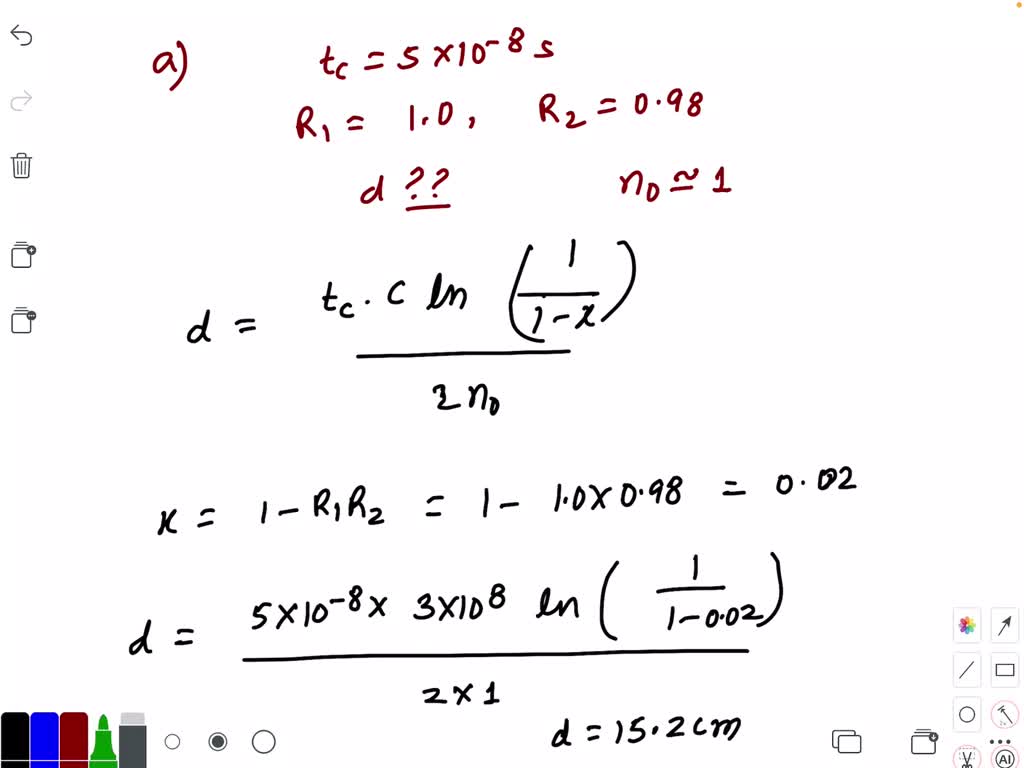 a) t_c = 5 × 10^-8 s
R_1 = 1.0, R_2 = 0.98
d ?? n_0 ≃ 1
d = t_c . c ln (1/(1-x)) / 2 n_0
x = 1 - R_1R_2 = 1 - 1.0 × 0.98 = 0.02
d = 5×10^-8 × 3×10^8 ln (1/(1-0.02)) / 2 × 1
d = 15.2 cm
AI